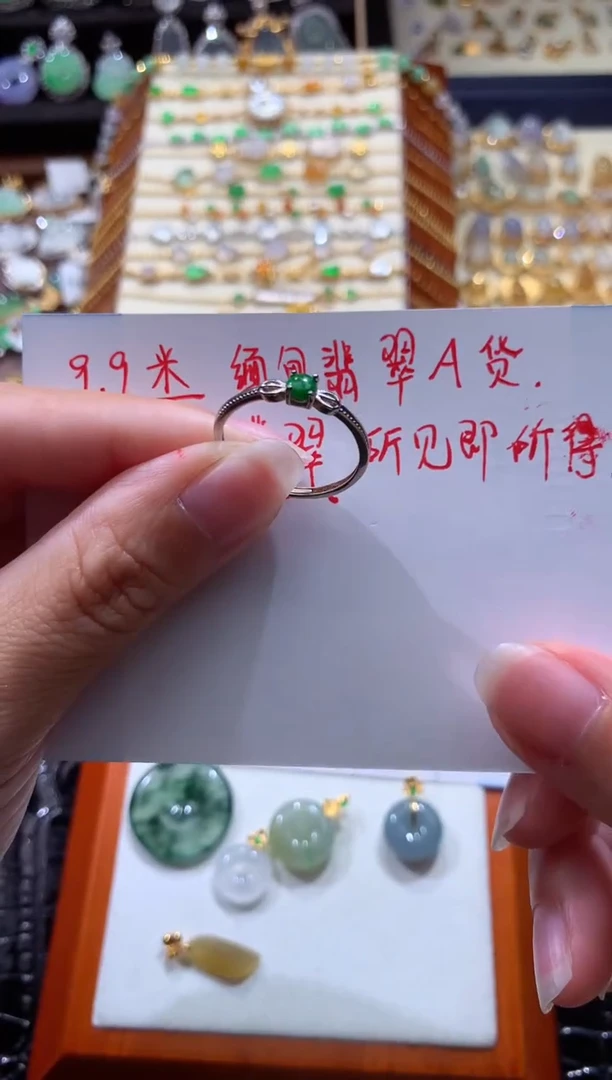 9.9米 缅甸翡翠A货.
翠,所见即所得